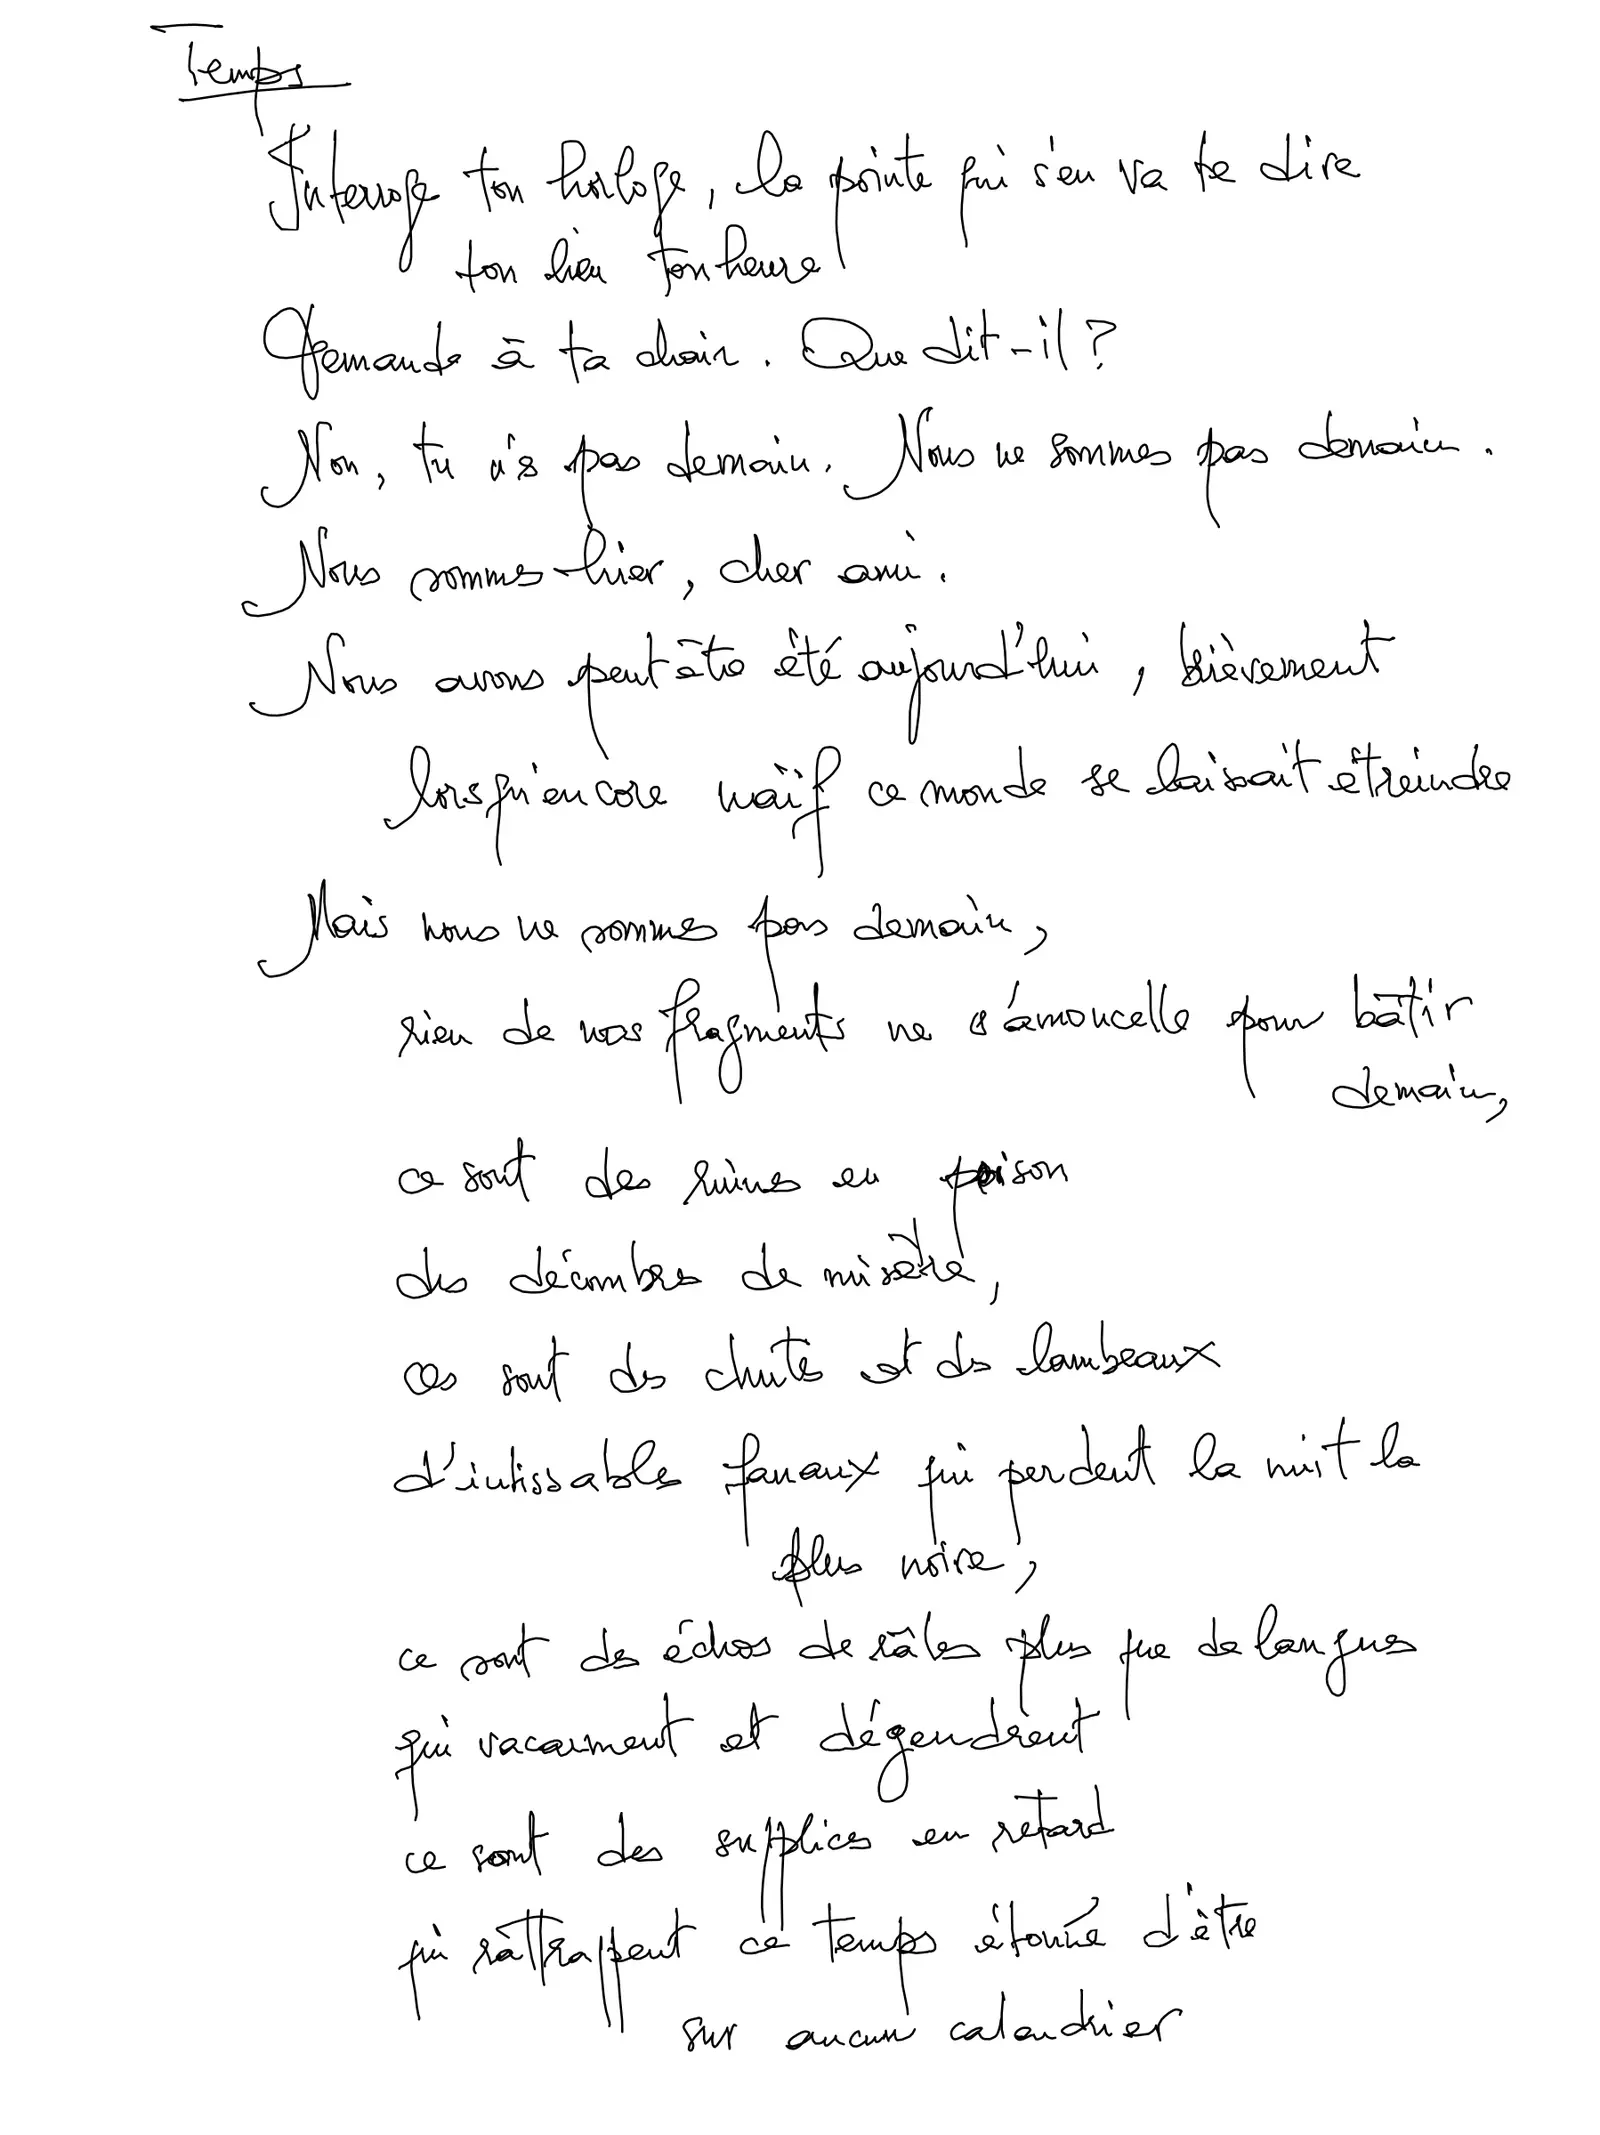 Temps
Interroge ton horloge, la pointe qui s'en va te dire
ton lieu ton heure
Demande à ta chair. Que dit-il?
Non, tu n's pas demain. Nous ne sommes pas demain.
Nous sommes hier, cher ami.
Nous avons peut être été aujourd'hui, brièvement
lorsqu'encore naïf ce monde se laissait étreindre
Mais nous ne sommes pas demain,
rien de nos fragments ne s'amoncelle pour bâtir
demain,
ce sont des ruines en poison
des décombres de misère,
ces sont des chutes et des lambeaux
d'intissables fanaux qui perdent la nuit la
plus noire,
ce sont des échos de râles plus que de langues
qui vacarment et dégendrent
ce sont des supplices en retard
qui rattrappent ce temps étonné d'être
sur aucun calendrier